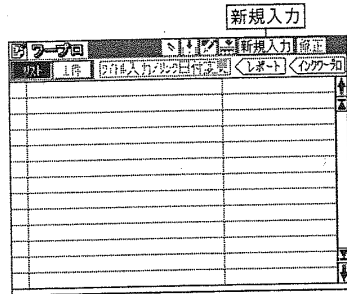 新規入力
ワープロ 新規入力 修正
リスト 1件 タイトル入力/リンク日付設定 <レポート <インクワープロ